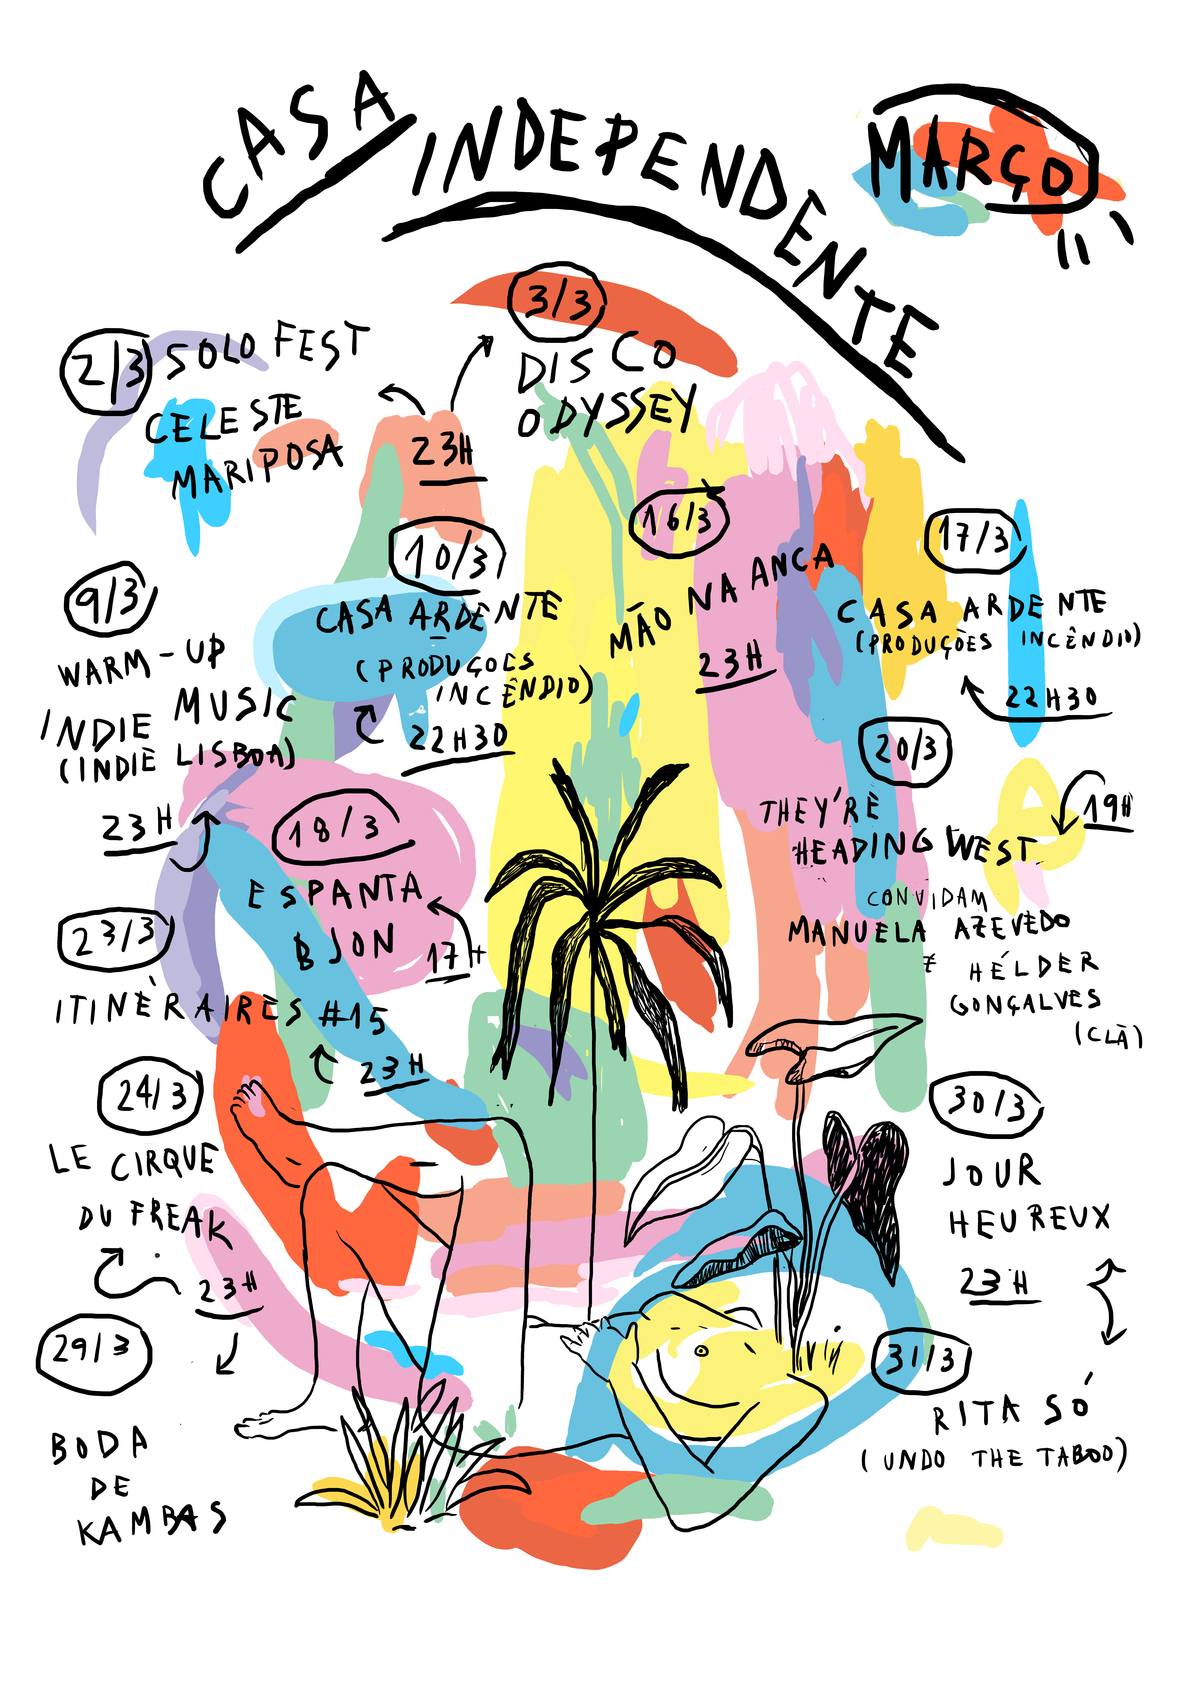 CASA INDEPENDENTE
MARÇO
2/3 SOLO FEST
CELESTE
MARIPOSA
3/3
DISCO
ODYSSEY
23H
9/3
WARM-UP
INDIE MUSIC
(INDIE LISBOA)
23H
10/3
CASA ARDENTE
(PRODUÇOES
INCÊNDIO)
22H30
16/3
MÃO NA ANCA
23H
17/3
CASA ARDENTE
(PRODUÇÕES INCÊNDIO)
22H30
18/3
ESPANTA
B JON
17H
20/3
19H
THEY'RE
HEADING WEST
CONVIDAM
MANUELA AZEVEDO
E HÉLDER
GONÇALVES
(CLÃ)
23/3
ITINÉRAIRES #15
23H
24/3
LE CIRQUE
DU FREAK
23H
29/3
BODA
DE
KAMBAS
30/3
JOUR
HEUREUX
23H
31/3
RITA SÓ
(UNDO THE TABOO)